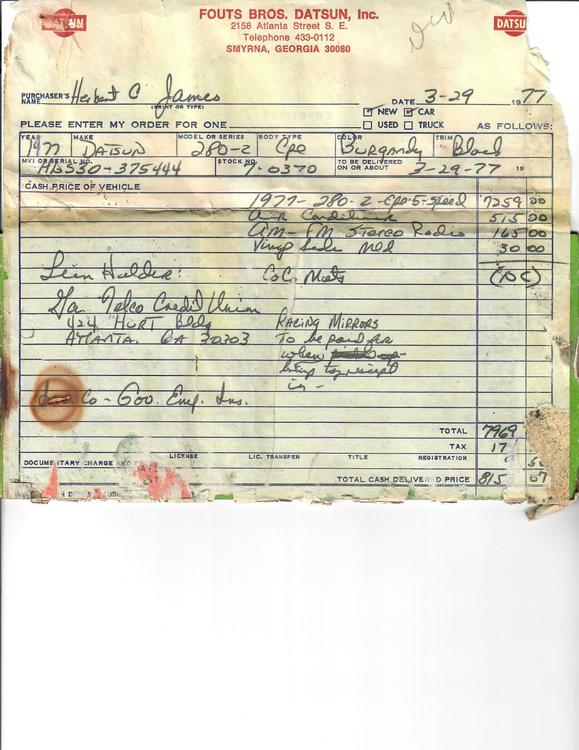 DATSUN
FOUTS BROS. DATSUN, Inc.
2158 Atlanta Street S. E.
Telephone 433-0112
SMYRNA, GEORGIA 30080
DATSUN
PURCHASER'S NAME Herbert C James
(PRINT OR TYPE)
DATE 3-29 1977
PLEASE ENTER MY ORDER FOR ONE
NEW CAR
USED TRUCK
AS FOLLOWS:
YEAR MAKE MODEL OR SERIES BODY TYPE COLOR TRIM
1977 DATSUN 280-Z Cpe Burgandy Black
MVI OR SERIAL NO. STOCK NO. TO BE DELIVERED ON OR ABOUT
HLS30-375444 7-0370 3-29-77 19
CASH PRICE OF VEHICLE
1977-280-Z-Cpe-5-Speed 7259 00
Air Conditioner 515 00
AM-FM Stereo Radio 165 00
Vinyl Side Mld 30 00
Lein Holder: CoCo Mats (NC)
Ga. Telco Credit Union
424 HURT Bldg RACING MIRRORS
ATLANTA. GA 30303 To be paid for
when
bring receipt
in -
Ins Co - Gov. Emp. Ins.
TOTAL 7969
TAX 17
LICENSE LIC. TRANSFER TITLE REGISTRATION
DOCUMENTARY CHARGE AND
TOTAL CASH DELIVERED PRICE 815 07